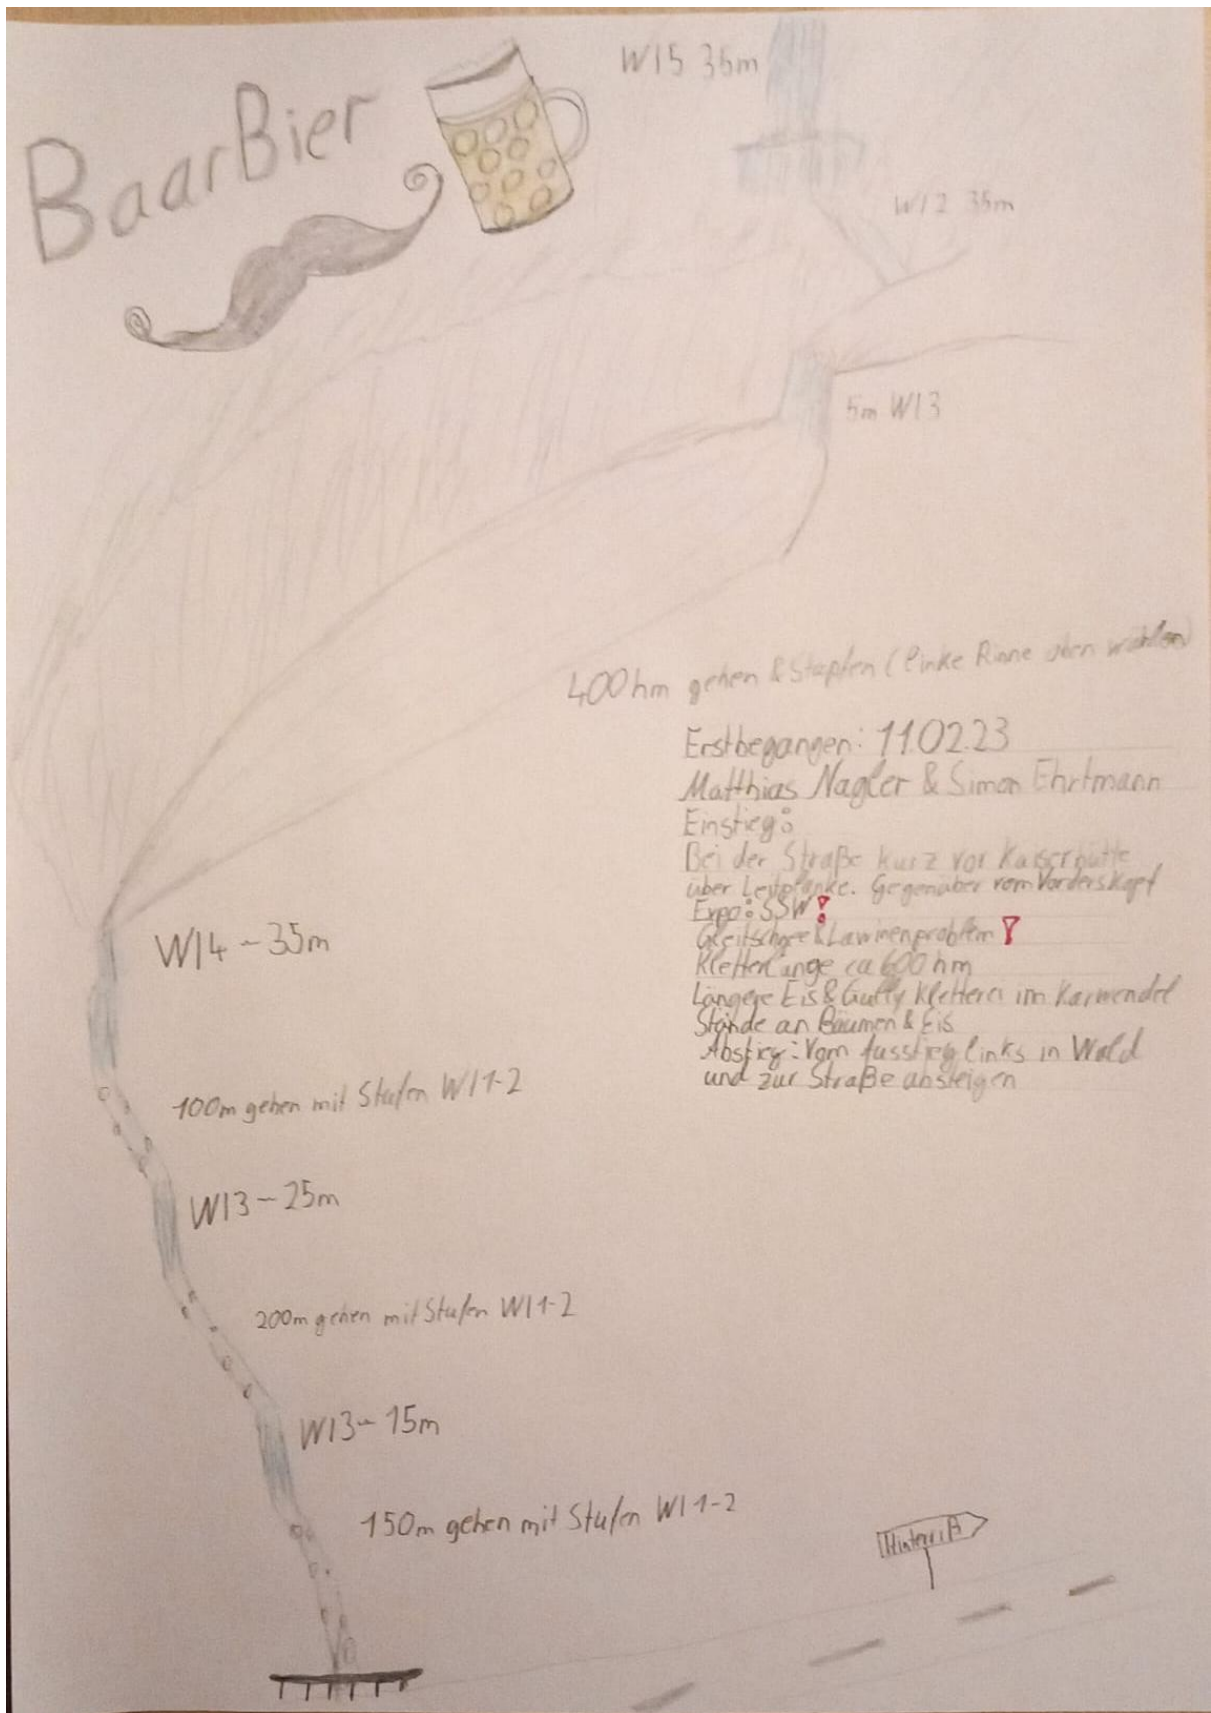 BaarBier
WI5 35m
WI2 35m
5m WI3
400hm gehen & Stapfen (linke Rinne oben wählen)
Erstbegangen: 11.02.23
Matthias Nagler & Simon Ehrtmann
Einstieg:
Bei der Straße kurz vor Kaiserhütte
über Leitplanke. Gegenüber vom Vorderskopf
Expo: SSW!
Gleitschnee & Lawinenproblem!
Kletterlänge ca 600hm
Längere Eis & Gully Kletterei im Karwendel
Stände an Bäumen & Eis
Abstieg: Vom Ausstieg links in Wald
und zur Straße absteigen
WI4 - 35m
100m gehen mit Stufen WI1-2
WI3 - 25m
200m gehen mit Stufen WI1-2
WI3 - 15m
150m gehen mit Stufen WI1-2
Hinterriß